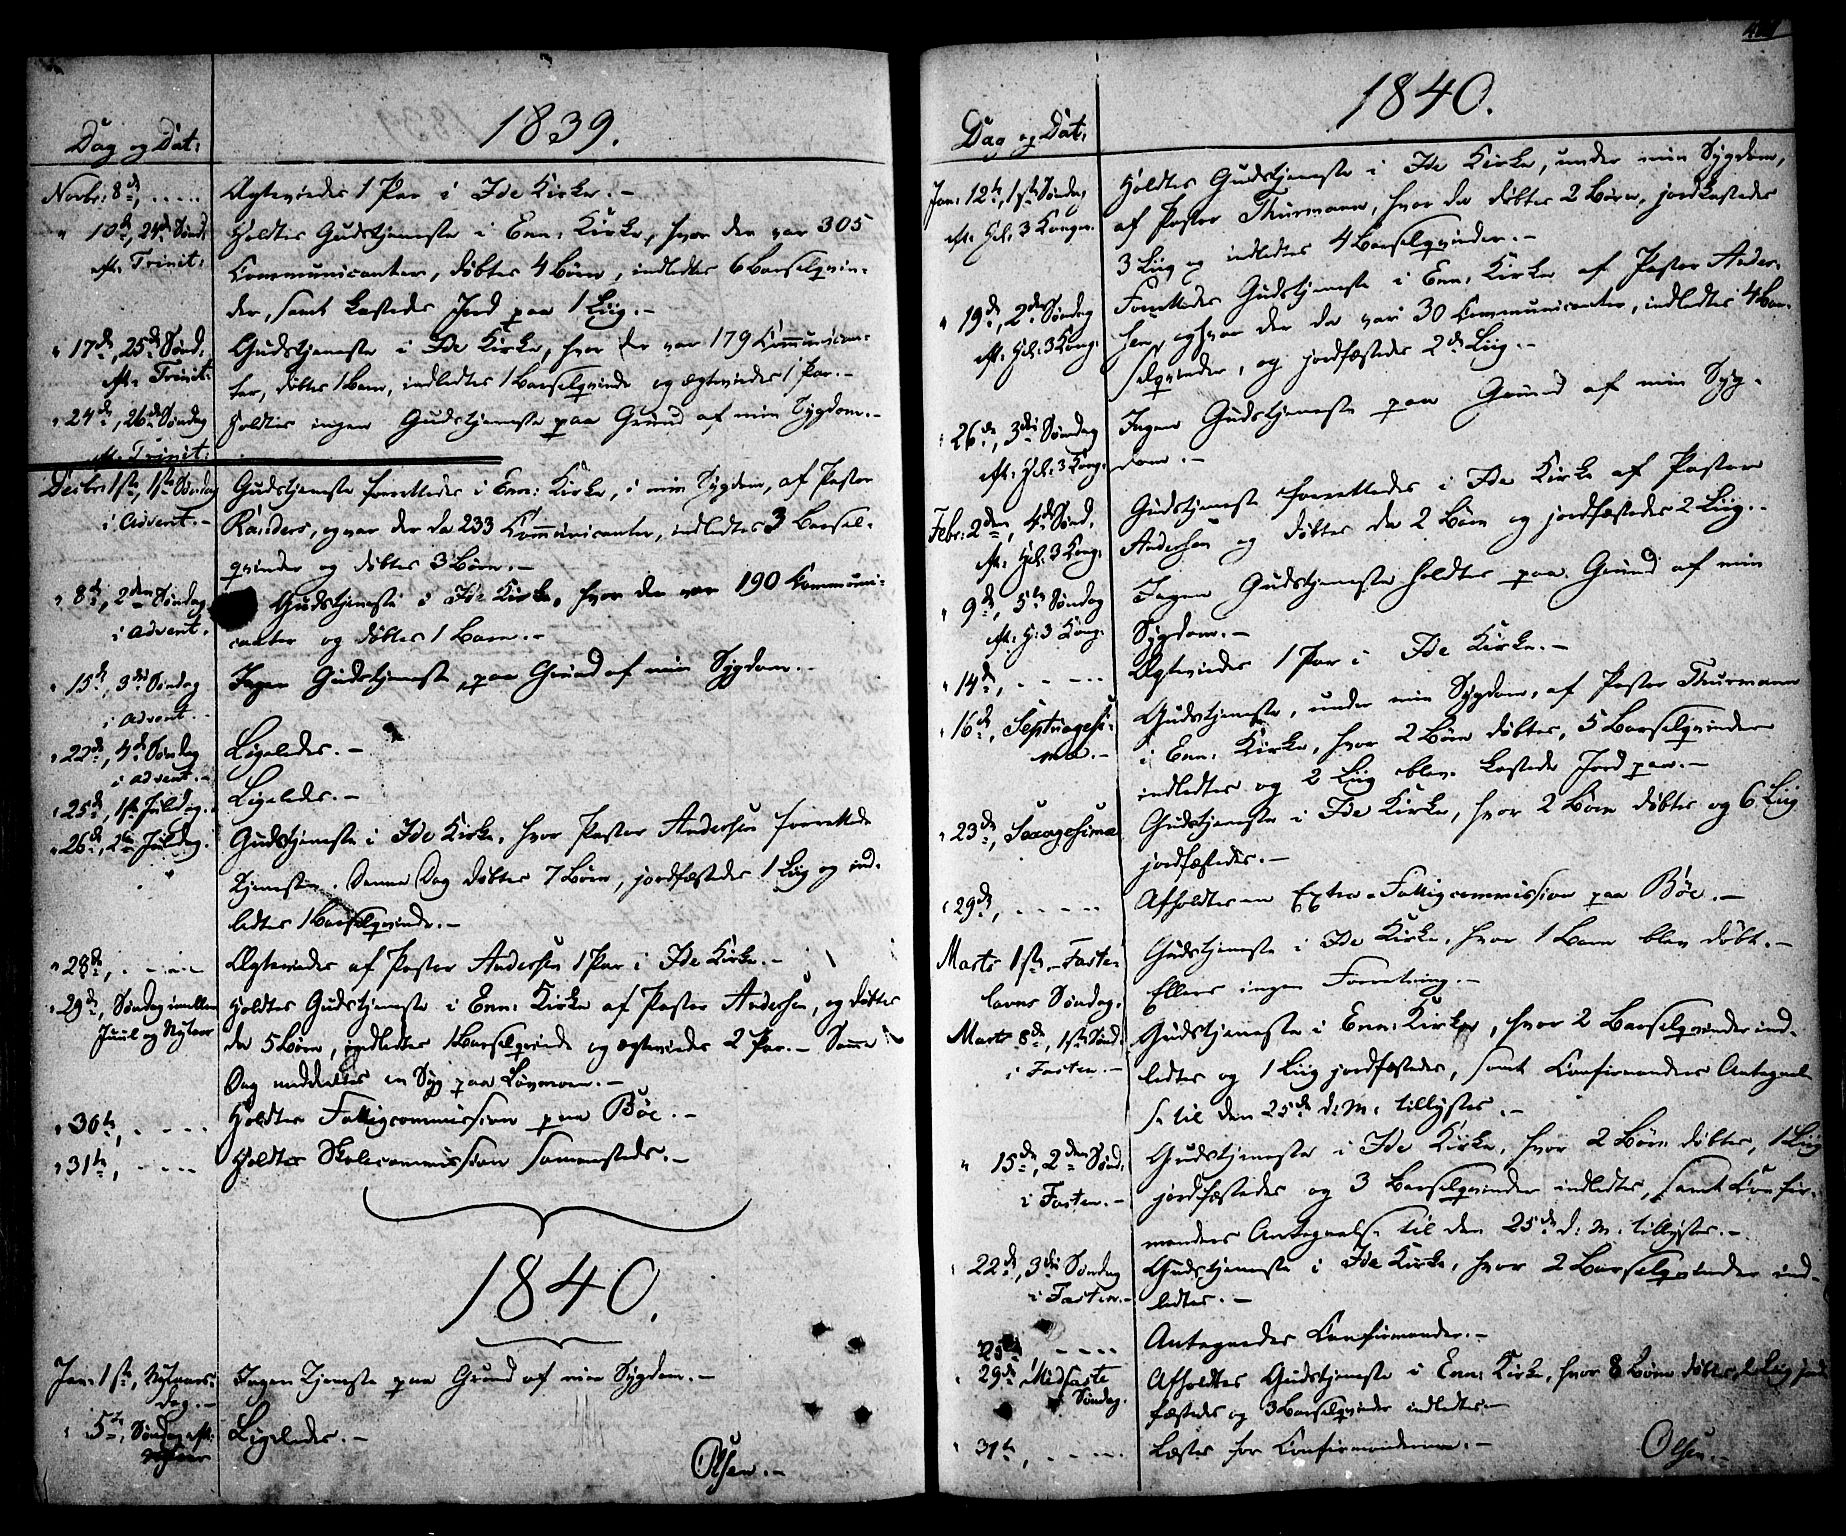 1839.
Dag og Dat:
Novbr: 8de, .....
Ægtevieedes 1 Par i Ide Kirke. -
" 10de, 24de Sønd:
Holdtes Gudstjeneste i Enn: Kirke, hvor der var 305
eft. Trinit:
Communicanter, døbtes 4 Børn, indledtes 6 Barselqvin-
der, samt kastedes Jord paa 1 Liig. -
" 17de, 25de Sønd,
Gudstjeneste i Ide Kirke, hvor der var 179 Communican-
eft. Trinit:
ter, døbtes 1 Barn, indledtes 1 Barselqvinde og ægteviedes 1 Par. -
" 24de, 26de Søndag
Holdtes ingen Gudstjeneste paa Grund af min Sygdom. -
eft. Trinit:
Decbr: 1ste, 1ste Søndag
Gudstjeneste forrettedes i Enn: Kirke, i min Sygdom, af Pastor
i Advent. -
Randers, og var der da 233 Communicanter, indledtes 3 Barsel-
qvinder og døbtes 3 Børn. -
" 8de, 2den Søndag
Gudstjeneste i Ide Kirke, hvor der var 190 Communi-
i Advent.
canter og døbtes 1 Barn. -
" 15de, 3die Søndag
Ingen Gudstjeneste, paa Grund af min Sygdom. -
i Advent. -
" 22de, 4de Søndag
Ligeledes. -
i Advent. -
" 25de, 1ste Juledag. -
Ligeledes. -
" 26de, 2den Juledag.
Gudstjeneste i Ide Kirke, hvor Pastor Andersen forrettede
Tjenesten. Denne Dag døbtes 7 Børn, jordfæstedes 1 Liig og ind-
ledtes 1 Barselqvinde. -
" 28de, .....
Ægteviedes af Pastor Andersen 1 Par i Ide Kirke. -
" 29de, Søndag imellem
Holdtes Gudstjeneste i Enn: Kirke af Pastor Andersen, og døbtes
Juul og Nytaar
da 5 Børn, indledtes 1 Barselqvinde og ægteviedes 2 Par. - Samme
Dag meddeeltes en Syg paa Løvmoen. -
" 30te, .....
Holdtes Fattigcommission paa Böe. -
" 31te, .....
Holdtes Skolecommission sammesteds. -
1840.
Jan: 1ste, Nytaars-
Ingen Tjeneste paa Grund af min Sygdom. -
dag. -
" 5te, Søndag eft.
Ligeledes. -
Nytaar
Olsen. -
1840.
Dag og Dat:
Jan: 12te, 1ste Søndag
Holdtes Gudstjeneste i Ide Kirke, under min Sygdom,
eft. Hel: 3 Konger.
af Pastor Thurmann, hvor da døbtes 2 Børn, jordkastedes
3 Liig og indledtes 4 Barselqvinder. -
" 19de, 2den Søndag
Forrettedes Gudstjeneste i Enn: Kirke af Pastor Ander-
eft. Hel: 3 Kong.
sen, og hvor der da vare 30 Communicanter, indledtes 4 Bar-
selqvinder, og jordfæstedes 2de Liig. -
" 26de, 3die Søndag
Ingen Gudstjeneste paa Grund af min Syg-
eft. Hel: 3 Kong.
dom. -
Febr: 2den, 4de Sønd.
Gudstjeneste forrettedes i Ide Kirke af Pastor
eft. Hel: 3 Kong:
Andersen og døbtes da 2 Børn og jordfæstedes 2 Liig. -
" 9de, 5te Søndag
Ingen Gudstjeneste holdtes paa Grund af min
eft. H: 3 Kong.
Sygdom. -
" 14de, .....
Ægteviedes 1 Par i Ide Kirke. -
" 16de, Septuagesi-
Gudstjeneste, under min Sygdom, af Pastor Thurmann
ma. -
i Enn: Kirke, hvor 2 Børn døbtes, 5 Barselqvinder
indledtes og 2 Liig blev kastede Jord paa. -
" 23de, Sexagesima
Gudstjeneste i Ide Kirke, hvor 2 Børn døbtes og 6 Liig
jordfæstedes. -
" 29de, .....
Afholdtes en Extra-Fattigcommission paa Böe. -
Marts 1ste - Faste-
Gudstjeneste i Ide Kirke, hvor 1 Barn blev døbt. -
lavns Søndag.
Ellers ingen Forretning. -
Marts 8de, 1ste Sønd.
Gudstjeneste i Enn: Kirke, hvor 2 Barselqvinder ind-
i Fasten. -
ledtes og 1 Liig jordfæstedes, samt Confirmanders Antegnel-
se til den 25de d: M: tillystes. -
" 15de, 2den Sønd.
Gudstjeneste i Ide Kirke, hvor 2 Børn døbtes, 1 Liig
i Fasten. -
jordfæstedes og 3 Barselqvinder indledtes, samt Confir-
manders Antegnelse til den 25de d: M: tillystes. -
" 22de, 3die Søndag
Gudstjeneste i Ide Kirke, hvor 2 Barselqvinder ind-
i Fasten. -
ledtes. -
25de ....
Antegnedes Confirmander. -
" 29de, Midfaste
Afholdtes Gudstjeneste i Enn: Kirke, hvor 8 Børn døbtes, Liig jord
Søndag.
fæstedes og 3 Barselqvinder indledtes -
" 31te, ....
Læstes for Confirmanderne. -
Olsen. -